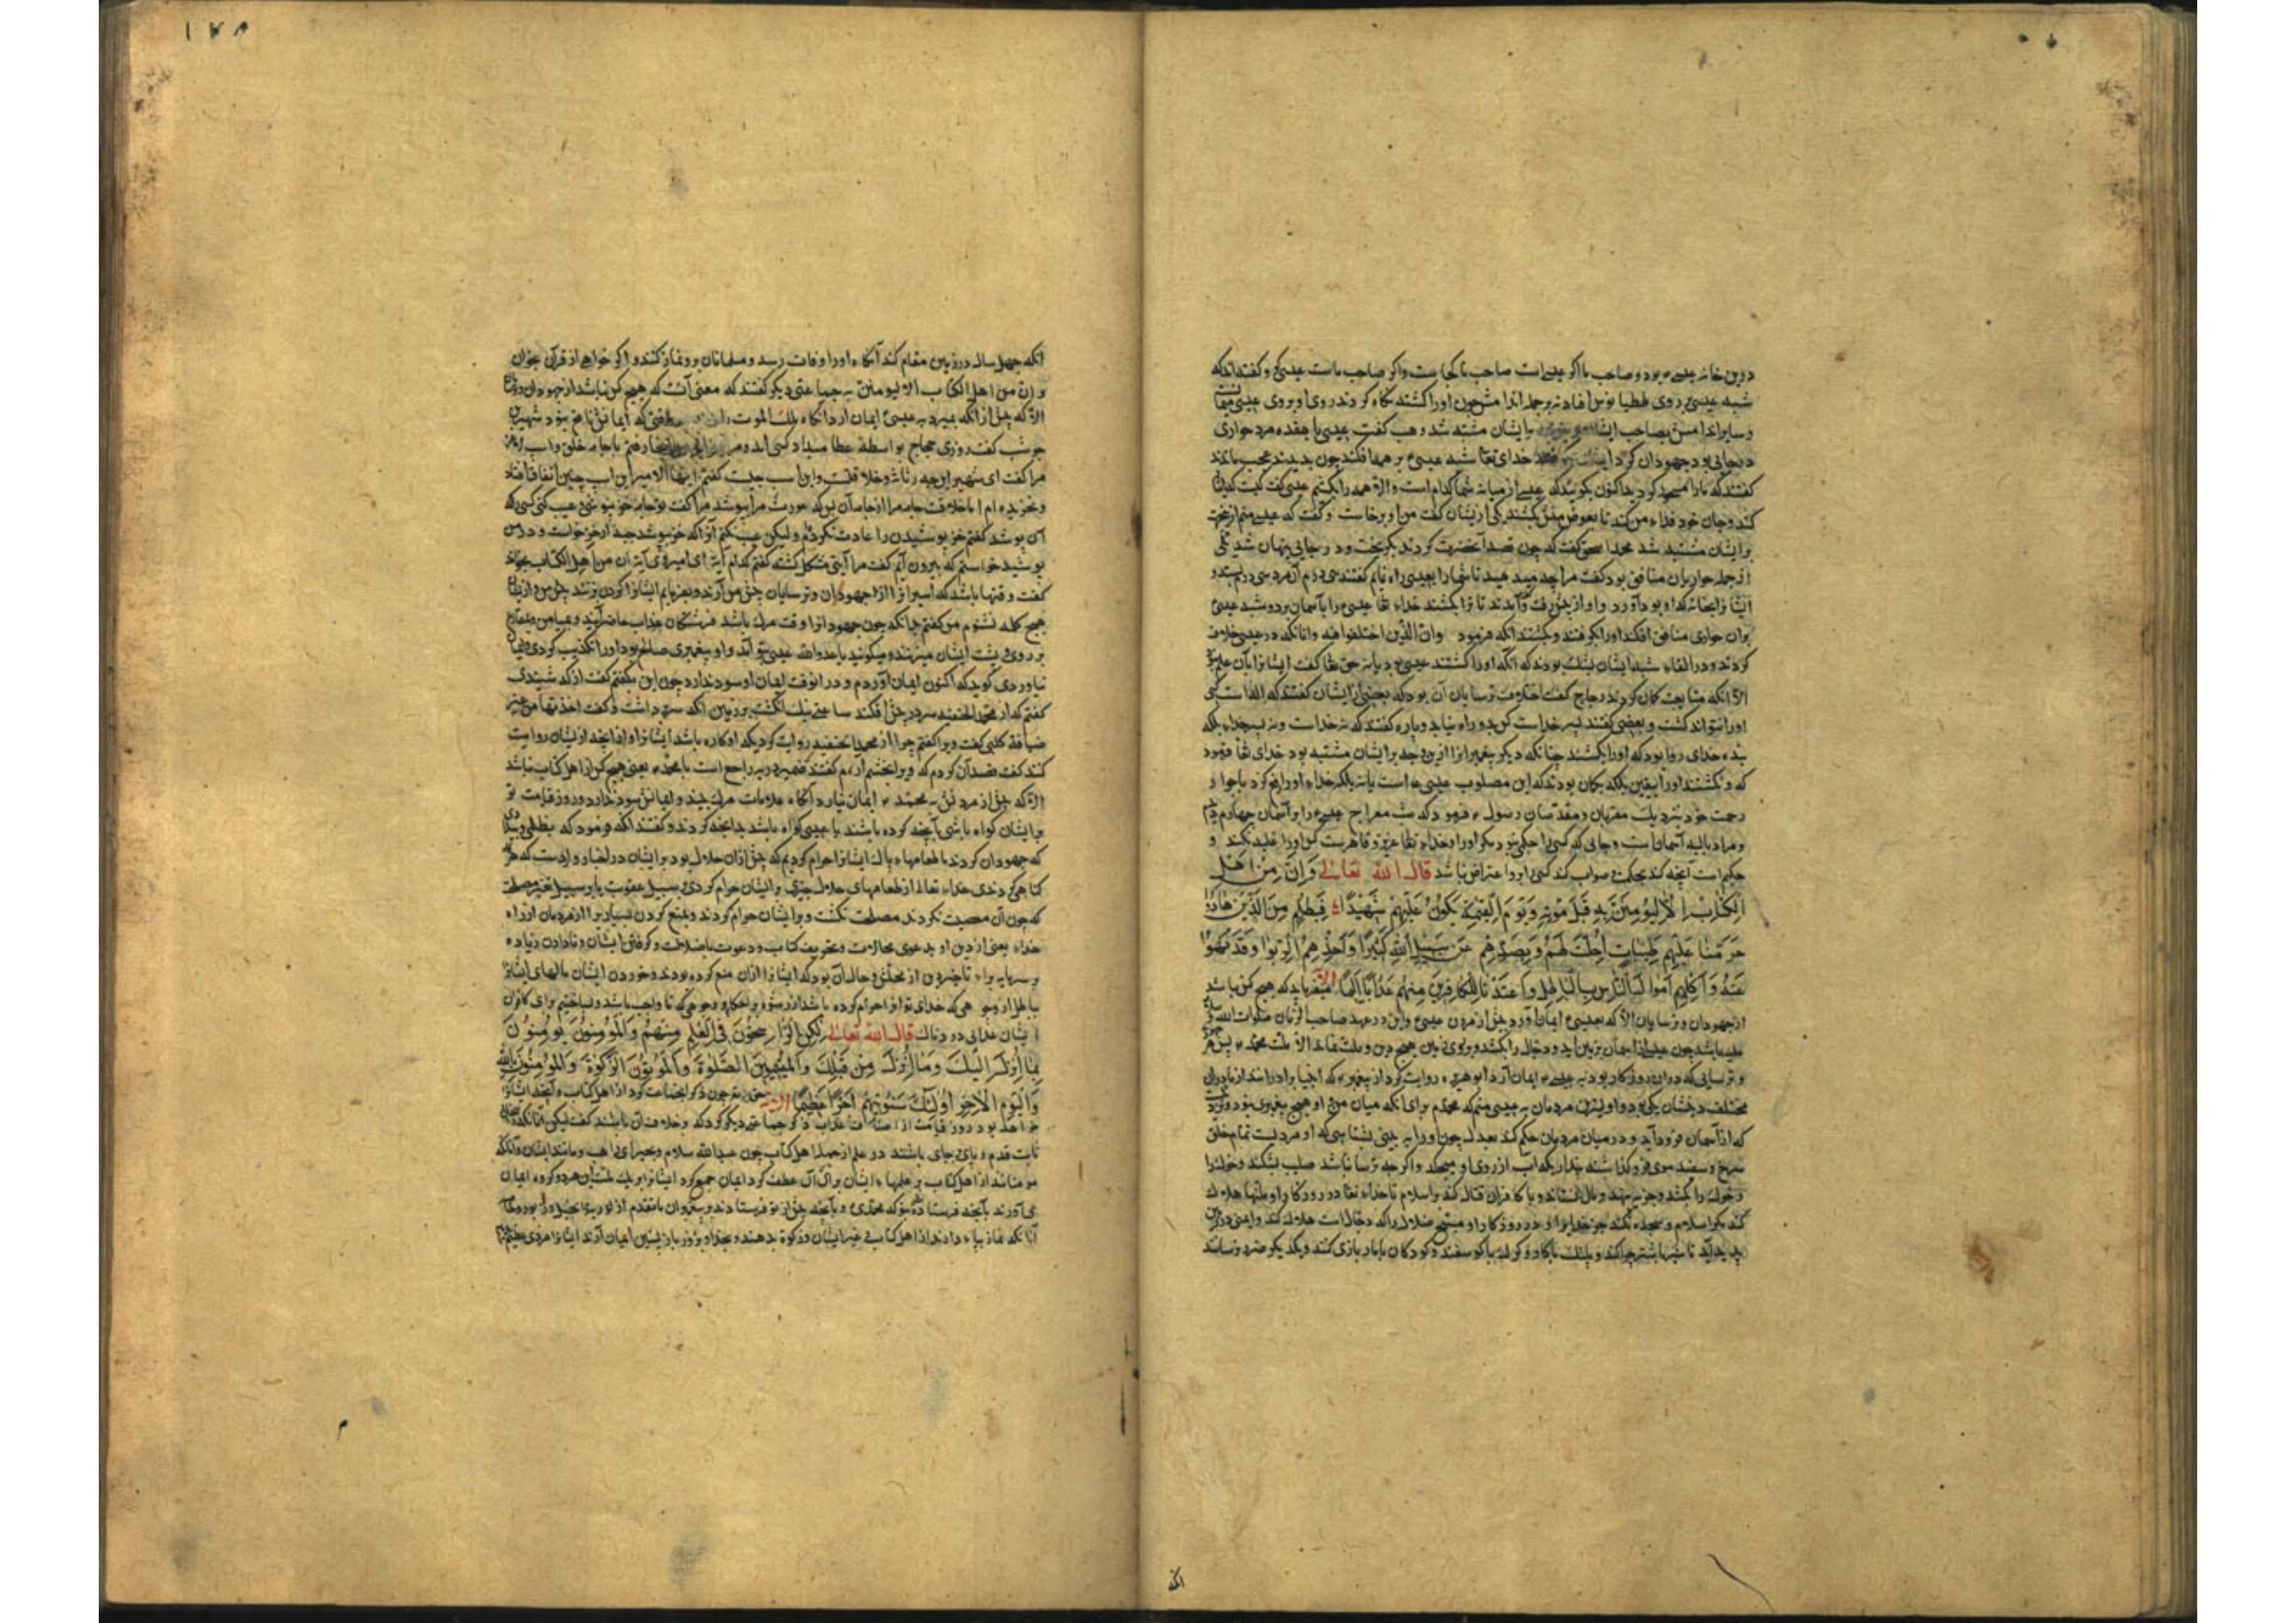 درین خانه عیسی بود و صاحب ما اگر عیسی است صاحب ما کجاست و اگر صاحب ماست عیسی کو و گفته‌اند که
شبه عیسی بر روی ططیانوس افتاد نه بر جمله اندامش چون او را کشتند نگاه کردند روی او بروی عیسی
و سایر اندامش بصاحب ایشان بر ایشان مشتبه شد وهب گفت عیسی با هفده مرد حواری
در جایی بود جهودان کرد خدای تعا شبه عیسی ع بر همه افکند چون بدیدند عجب ماندند
گفتند که ما را مسحور کردید اکنون بگویید که عیسی از میانه شما کدام است والا همه را بکشیم عیسی گفت کیست که
کند و جان خود فداء من کند تا بعوض منش بکشند یکی از یشان گفت من او برخاست و گفت که عیسی منم
بر ایشان مشتبه شد محمد اسحق گفت که چون قصد آنحضرت کردند بگریخت و در جایی پنهان شد
از جمله حواریان منافق بود گفت مرا چه میدهید تا شما را بعیسی راه نمایم گفتند سی درم آن مرد سی درم بستد و
ایشان را بخانه که او بود آورد و او از پیش رفت و آمدند تا او را بکشند خداء تعا عیسی را بآسمان برد و شبه عیسی
بر آن حواری منافق افکند او را بگرفتند و بکشتند آنکه فرمود وان الذین اختلفوا فیه و آنانکه در عیسی خلاف
کردند و در القاء شبه ایشان بشک بودند که آنکه او را کشتند عیسی بود یا نه حق تعا گفت ایشان را بآن علم نبود
الا آنکه متابعت گمان کردند زجاج گفت اختلاف ترسایان آن بود که بعضی از ایشان گفتند که اله است کسی
او را نتواند کشت و بعضی گفتند پسر خداست کس بدو راه نیابد و پاره گفتند که نه خداست و نه پسر خداء بلکه
بنده خدای روا بود که او را بکشند چنانکه دیگر پیغمبران را ازین وجه بر ایشان مشتبه بود خدای تعا فرمود
که و نکشتند او را بیقین بلکه بگمان بودند که این مصلوب عیسی ع است یا نه بلکه خداء او را رفع کرد با جوار
رحمت خود نزدیک مقربان و مقدسان رسول ع فرمود که شب معراج عیسی ع را بر آسمان چهارم دیدم
و مراد بالیه آسمان است و جایی که کسی را حکمی نبود مگر او را و خداء تعا عزیز و قاهرست کس او را غلبه نکند و
حکیم است آنچه کند بحکمت و صواب کند کسی را برو اعتراض نباشد قال الله تعالی وَاِنْ مِنْ اَهْلِ
الْکِتَابِ اِلَّا لَیُؤْمِنَنَّ بِهِ قَبْلَ مَوْتِهِ وَیَوْمَ الْقِیٰمَةِ یَکُونُ عَلَیْهِمْ شَهِیْدًا فَبِظُلْمٍ مِنَ الَّذِیْنَ هَادُوْا
حَرَّمْنَا عَلَیْهِمْ طَیِّبَاتٍ اُحِلَّتْ لَهُمْ وَبِصَدِّهِمْ عَنْ سَبِیْلِ اللهِ کَثِیْرًا وَاَخْذِهِمُ الرِّبٰوا وَقَدْ نُهُوْا
عَنْهُ وَاَکْلِهِمْ اَمْوَالَ النَّاسِ بِالْبَاطِلِ وَاَعْتَدْنَا لِلْکَافِرِیْنَ مِنْهُمْ عَذَابًا اَلِیْمًا الآیه میفرماید که هیچ کس نباشد
از جهودان و ترسایان الا که بعیسی ع ایمان آورد پیش از مردن عیسی ع و این در عهد صاحب الزمان صلوات الله
علیه باشد چون عیسی از آسمان بزمین آید و دجال را بکشد و بر روی زمین هیچ دین و ملت نماند الا ملت محمد ع پس هر
و ترسایی که در آن روزگار بود به عیسی ع ایمان آرد ابو هریره روایت کرد از پیغمبر ع که انبیا برادرانند از مادران
مختلف دینشان یکی بود و اولیترین مردمان به عیسی منم که محمدم برای آنکه میان من و او هیچ پیغمبری نبود و زود
که از آسمان فرود آید و در میان مردمان حکم کند بعدل چون او را به بینی بشناسی که او مردیست تمام خلق
سرخ و سفید موی فرو گذاشته پنداری که آب از روی او میچکد و اگر چه ترسا نباشد صلیب بشکند و خوک را
و خوک را بکشد و جزیه بنهد و مال بفشاند و با کافران قتال کند بر اسلام تا خداء تعا در روزگار او ملتها هلاک
کند مگر اسلام و سجده نکنند جز خدایرا و در روزگار او مسیح ضلال را که دجال است هلاک کند و ایمنی در زمین
پدید آید تا شیر با شتر چرا کند و پلنگ با گاو و گرگ با گوسفند و کودکان با مار بازی کنند و یکدیگر ضرر نرسانند
انکه
۱۷۸
آنکه چهل سال در زمین مقام کند آنگاه او را وفات رسد و مسلمانان برو نماز کنند و اگر خواهی از قرآن بخوان
و ان من اهل الکتاب الا لیومنن به جماعتی دیگر گفتند که معنی آنست که هیچ کس نباشد از جهودان و ترسا
الا که پیش از آنکه بمیرد به عیسی ع ایمان آرد آنگاه ملک الموت را که ایمانش نافع نبود شهربن
حوشب گفت روزی حجاج بواسطه عطا میداد کسی آمد و مرا رفتم با جامه خلق و اسب لاغر
مرا گفت ای شهر این چه رثاثه و خلاقتست و این اسب چیست گفتم ایها الامیر این اسب چنین اتفاق افتاد
و بخریده ام اما خلاقت جامه مرا از جامه آن بس که عورت مرا بپوشد مرا گفت تو جامه خز نپوشی و عیب کنی کسی که
آن پوشد گفتم خز پوشیدن را عادت نکرده‌ام ولیکن عیب نکنم آنرا که خز پوشد جبه از خز خواست و در من
پوشید خواستم که بیرون آیم گفت مرا آیتی مشکل گشته گفتم کدام آیة ای امیر گفت آیة ان من اهل الکتاب بخواند
گفت وقتها باشد که اسیران را از جهودان و ترسایان پیش من آرند و بفرمایم ایشان را گردن بزنند پیش من از ایشان
هیچ کلمه نشنوم من گفتم چنانکه چون جهود را وقت مرگ باشد فرشتگان عذاب حاضر آیند و
بر روی و پشت ایشان میزنند و میگویند یا عدو الله عیسی بتو آمد و او پیغمبری صالح بود او را تکذیب کردی و ایمان
نیاوردی گوید که اکنون ایمان آوردم و در آنوقت ایمان او سود ندارد چون این بگفتم گفت از که شنیدی
گفتم که از محمد الحنفیه سر در پیش افکند ساعتی یک انگشت بر زمین آنکه سر برداشت و گفت اخذتها من عین
صافیة کلبی گفت ویرا گفتم چرا از محمد حنفیه روایت کردی که او کاره باشد ایشان را و از آنچه از یشان روایت
کنند گفت قصد آن کردم که ویرا بخشم آرم و گفتند ضمیر در به راجع است با محمد ع یعنی هیچ کس از اهل کتاب نباشد
الا که پیش از مردنش به محمد ع ایمان نیارد آنگاه علامات مرگ بیند و ایمانش سود ندارد و روز قیامت تو
بر ایشان گواه باشی بآنچه کرده باشند یا عیسی گواه باشد بدانچه کردند و گفتند آنکه فرمود که بظلمی و ستمی
که جهودان کردند ما طعامهاء پاک ایشان را حرام کردیم که پیش از آن حلال بود بر ایشان در اخبار و آمدست که هر
گناهی کردندی خداء تعالی از طعامهای حلال چیزی بر ایشان حرام کردی بر سبیل عقوبت یا بر سبیل تغیر مصلحت
که چون آن معصیت نکردند مصلحت نگشت و بر ایشان حرام کردند و بمنع کردن بسیاریرا از مردمان از راه
خداء یعنی از دین او بدعوی محالات و تحریف کتاب و دعوت با ضلالت و گرفتن ایشان و تا دادن زیاده
بر سرمایه براء تاخیر دین از محلش و حال آن بود که ایشان را از آن منع کرده بودند و خوردن ایشان مالهای ایشان را
بباطل از وجوهی که خدای تعا آنرا حرام کرده باشد از رشوه بر احکام و وجوهی که نا واجب باشد و بساختیم برای کافران
ایشان عذابی دردناک قال الله تعالی لٰکِنِ الرَّاسِخُوْنَ فِی الْعِلْمِ مِنْهُمْ وَالْمُؤْمِنُوْنَ یُؤْمِنُوْنَ
بِمَا اُنْزِلَ اِلَیْکَ وَمَا اُنْزِلَ مِنْ قَبْلِکَ وَالْمُقِیْمِیْنَ الصَّلٰوةَ وَالْمُؤْتُوْنَ الزَّکٰوةَ وَالْمُؤْمِنُوْنَ بِاللهِ
وَالْیَوْمِ الْآخِرِ اُولٰئِکَ سَنُؤْتِیْهِمْ اَجْرًا عَظِیْمًا الآیه حق تعا چون ذکر جماعت کرد از اهل کتاب و آنچه ایشان را
خواهد بود روز قیامت از اصناف عذاب ذکر جماعتی دیگر کرد که بخلاف آن باشند گفت لیکن آنانکه
ثابت قدم و پای بر جای باشند در علم از جمله اهل کتاب چون عبدالله سلام و بحیرای راهب و مانند ایشان و آنکه
مومنانند از اهل کتاب بر علمهاء ایشان برای آن عطف کرد ایمان جمع کرد ایشان را بر یک ملت آن هر دو گروه ایمان
می آورند بآنچه فرستاده اند بتو که محمدی و بآنچه پیش از تو فرستادند و پیغمبران ما تقدم از توریة و انجیل و زبور و
آنانکه نماز بپاء دارند از اهل کتاب غیر ایشان و زکوة بدهند و بخدا و بروز بازپسین ایمان آرند ایشان را مزدی عظیم